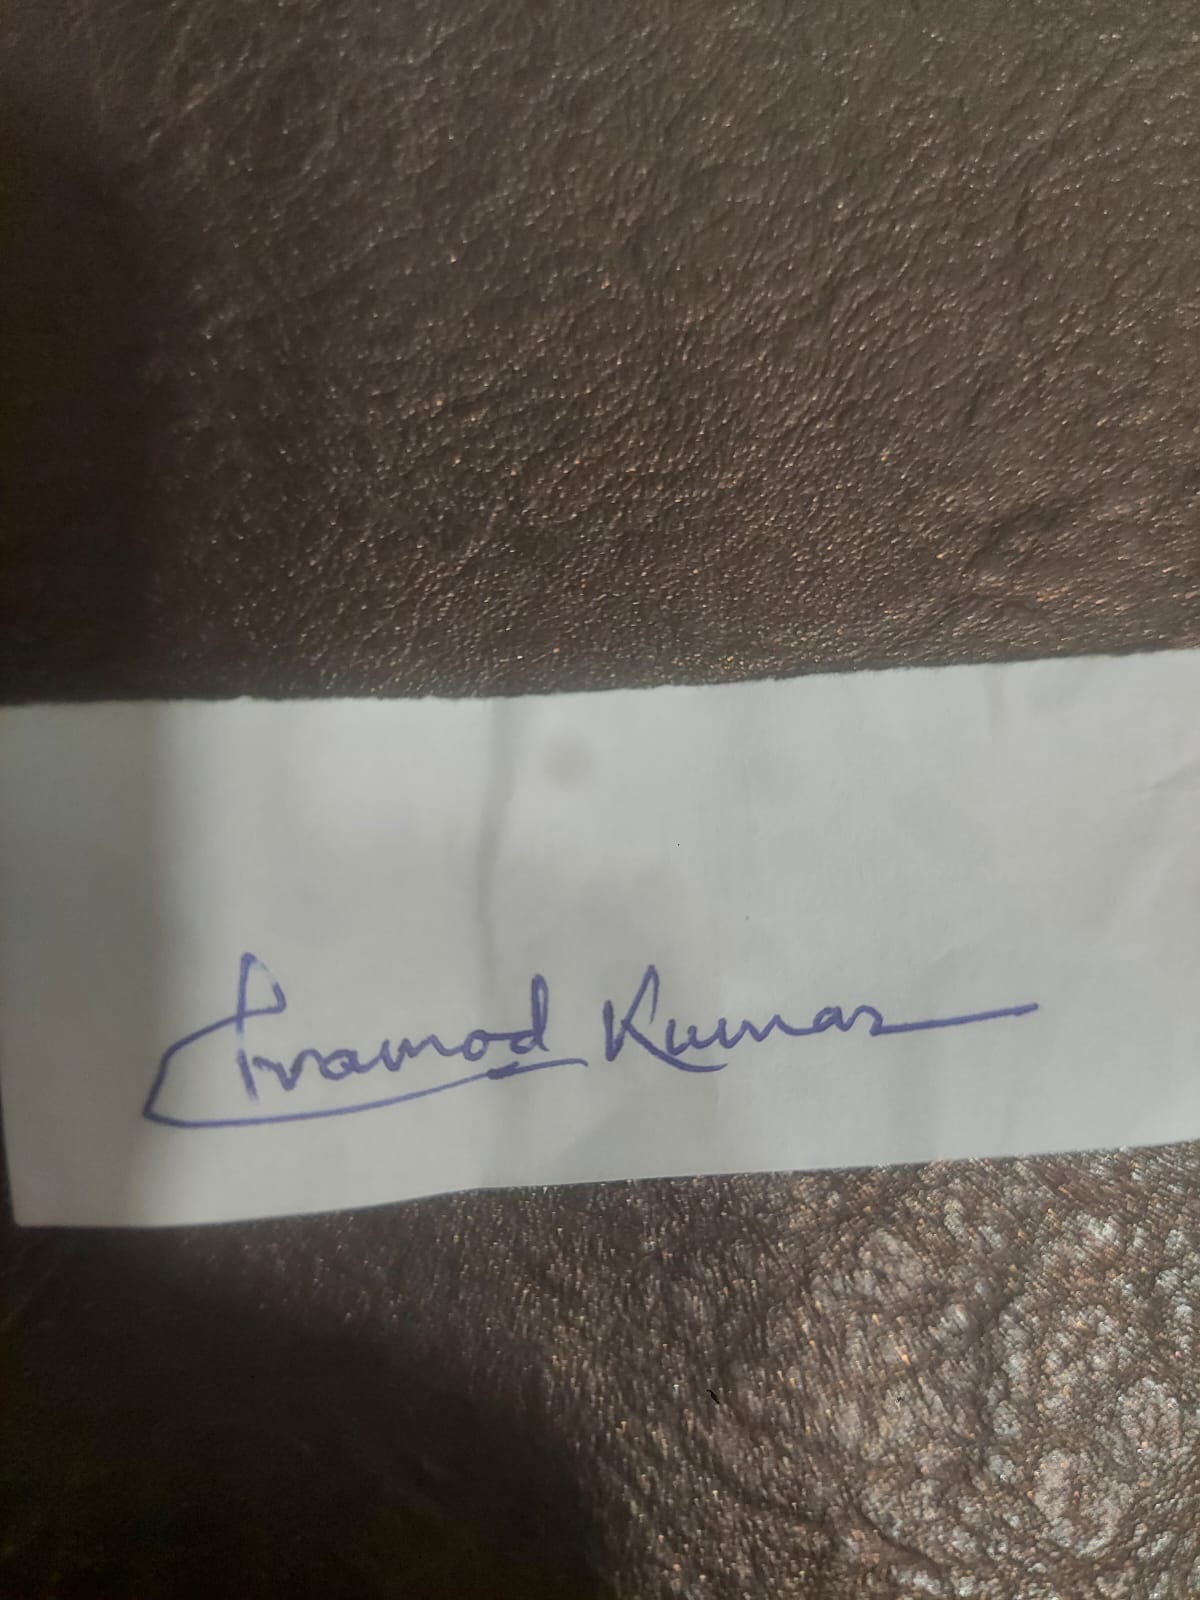 Pramod Kumar